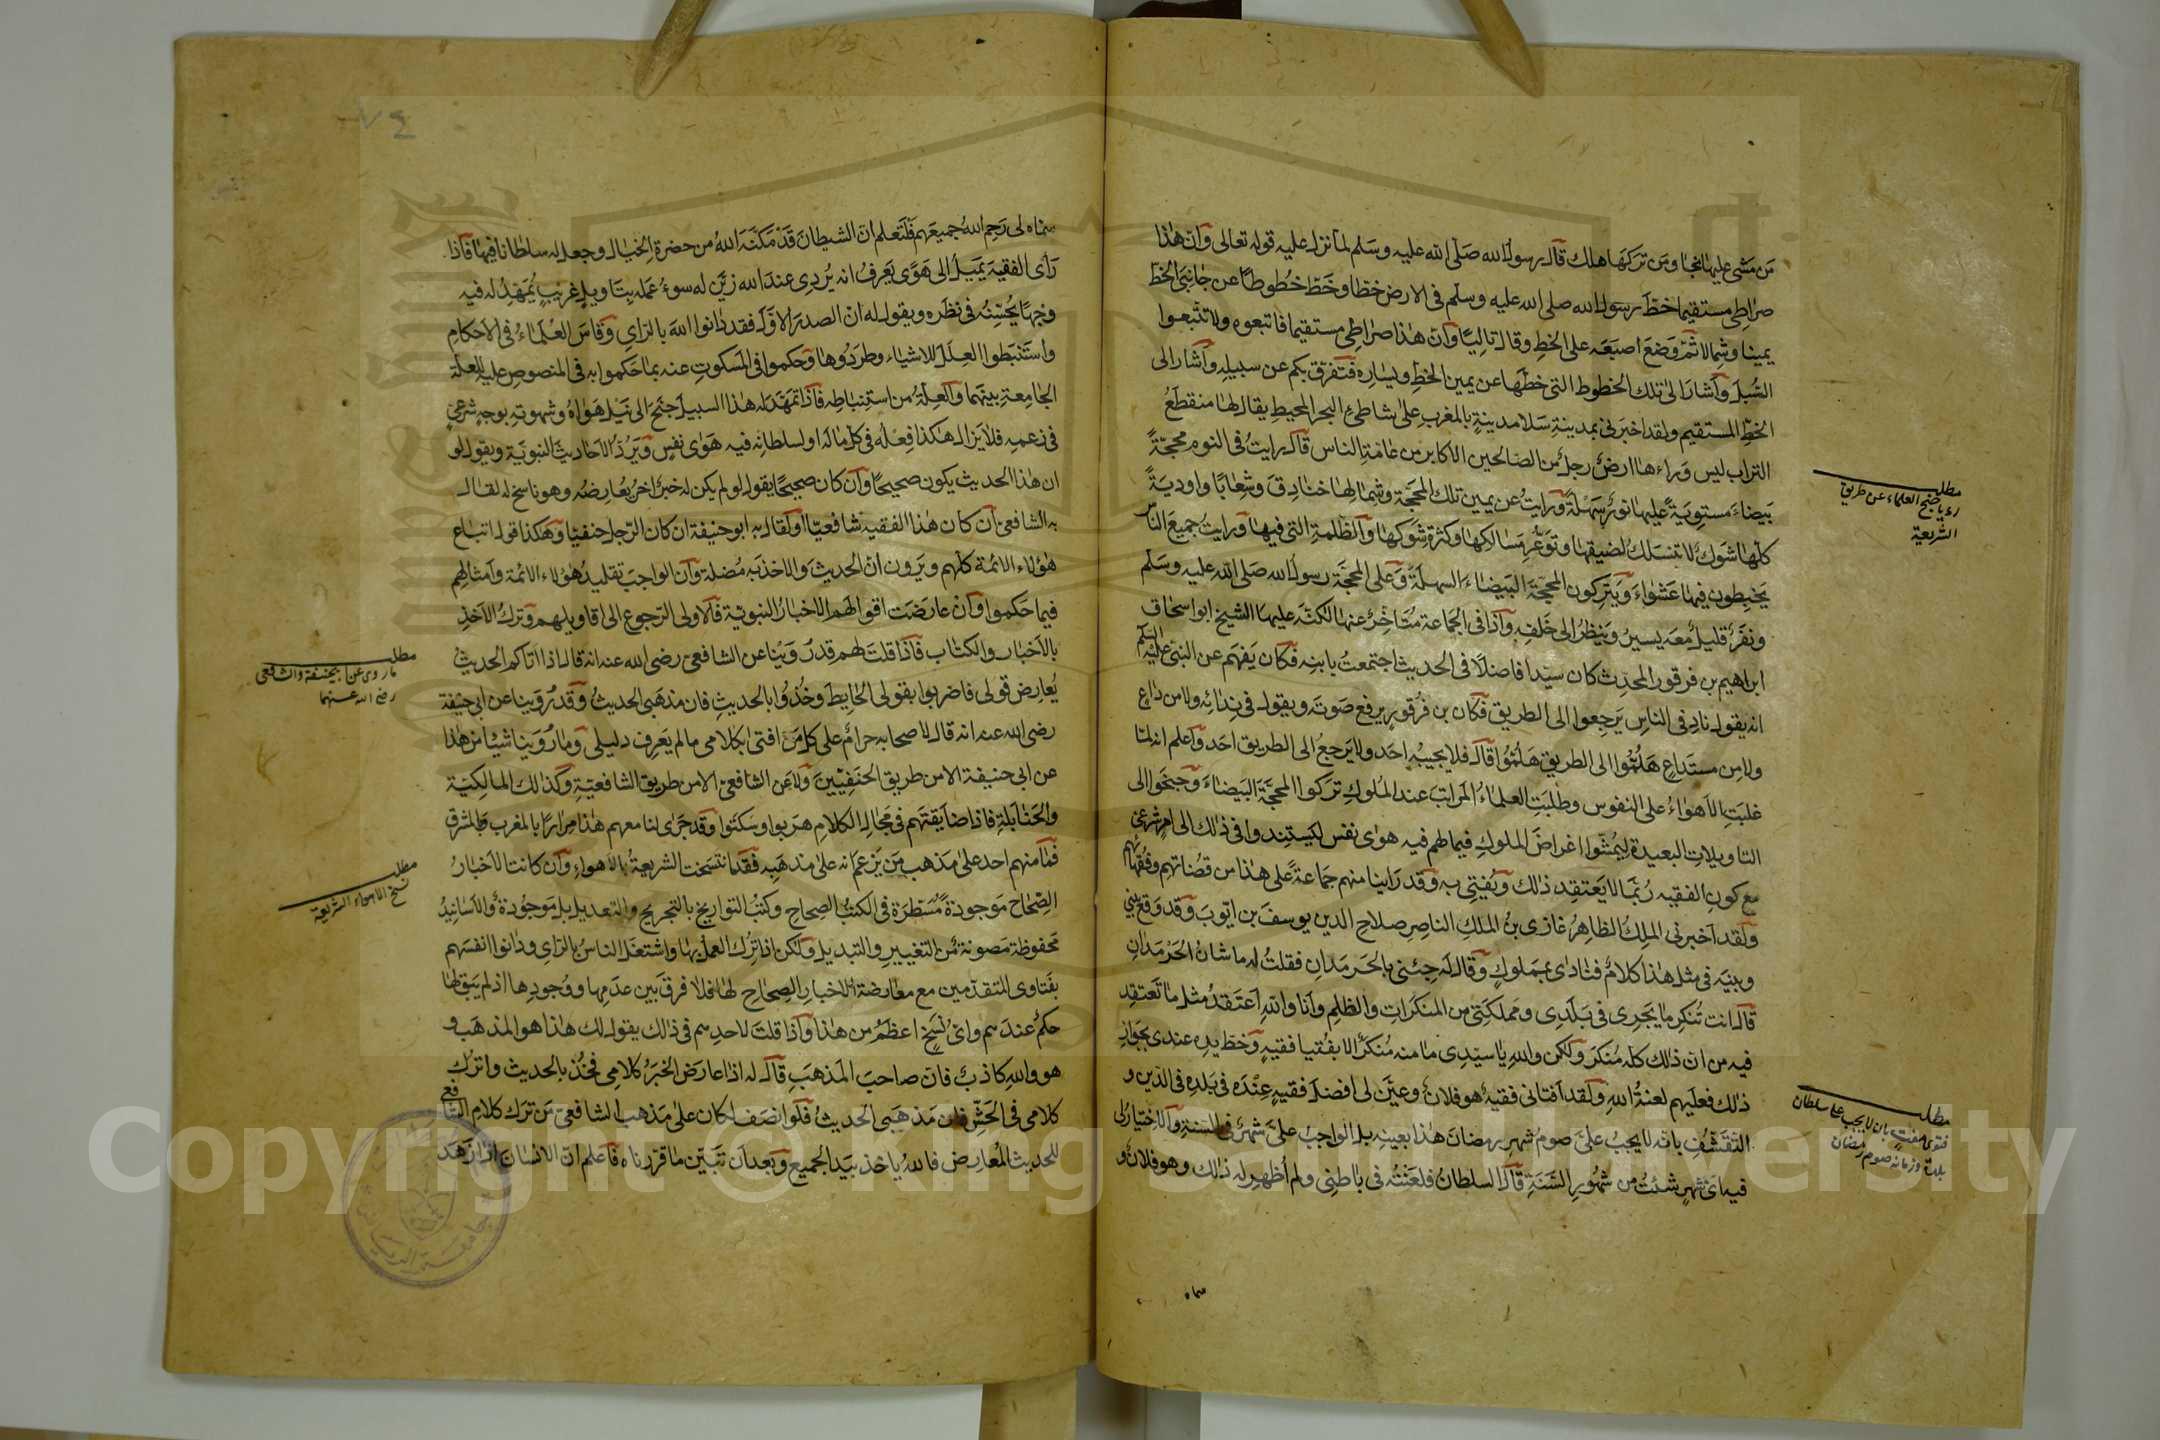 من مشى عليها نجا ومن تركها هلك قال رسول الله صلى الله عليه وسلم لما نزل عليه قوله تعالى وان هذا
صراطي مستقيما خط رسول الله صلى الله عليه وسلم في الارض خطا وخط خطوطا عن جانبي الخط
يمينا وشمالا ثم وضع اصبعه على الخط وقال تاليا وان هذا صراطي مستقيما فاتبعوه ولا تتبعوا
السبل واشار الى تلك الخطوط التي خطها عن يمين الخط ويساره فتفرق بكم عن سبيله واشار الى
الخط المستقيم ولقد اخبرني بمدينة سلا مدينة بالمغرب على شاطئ البحر المحيط يقال لها منقطع
التراب ليس وراءها ارض رجل من الصالحين الاكابر من عامة الناس قال رايت في النوم محجة
بيضاء مستوية عليها نور سهلة ورايت عن يمين تلك المحجة وشمالها خنادق وشعابا واودية
كلها شوك لا تنسلك لضيقها وتوعر مسالكها وكثرة شوكها والظلمة التي فيها ورايت جميع الناس
يخبطون فيها عشواء ويتركون المحجة البيضاء السهلة وعلى المحجة رسول الله صلى الله عليه وسلم
ونفر قليل معه يسير وينظر الى خلفه واذا في الجماعة متاخر عنها لكنه عليها الشيخ ابو اسحاق
ابراهيم بن قرقور المحدث كان سيدا فاضلا في الحديث اجتمعت بابنه فكان يفهم عن النبي عليه السلم
انه يقول ناد في الناس يرجعوا الى الطريق فكان بن قرقور يرفع صوته ويقول في ندائه ولا من داع
ولا من مستداع هلموا الى الطريق هلموا قال فلا يجيبه احد ولا يرجع الى الطريق احد واعلم انه لما
غلبت الاهواء على النفوس وطلبت العلماء المراتب عند الملوك تركوا المحجة البيضاء وجنحوا الى
التاويلات البعيدة ليمشوا اغراض الملوك فيما لهم فيه هوى نفس ليستندوا في ذلك الى امر شرعي
مع كون الفقيه ربما لا يعتقد ذلك ويفتي به وقد راينا منهم جماعة على هذا من قضاتهم وفقهائهم
ولقد اخبرني الملك الظاهر غازي بن الملك الناصر صلاح الدين يوسف بن ايوب وقد وقع بيني
وبينه في مثل هذا كلام فنادى بمملوك وقال له جئني بالحرمدان فقلت له ما شان الحرمدان
قال انت تنكر ما يجري في بلدي ومملكتي من المنكرات والظلم وانا والله اعتقد مثل ما تعتقد
فيه من ان ذلك كله منكر ولكن والله يا سيدي ما منه منكر الا بفتيا فقيه وخط يده عندي بجواز
ذلك فعليهم لعنة الله ولقد افتاني فقيه هو فلان وعين لي افضل فقيه عنده في بلده في الدين و
التقشف بانه لا يجب علي صوم شهر رمضان هذا بعينه بل الواجب علي شهر في السنة والاختيار لي
فيه اي شهر شئت من شهور السنة قال السلطان فلعنته في باطني ولم اظهر له ذلك وهو فلان و
سماه
مطلب
رؤيا جنح العلماء عن طريق
الشريعة
مطلب
فتوى مفت بان لا يجب على سلطان
بلدة وزمانه صوم رمضان
٧٤
سماه لي رحم الله جميعهم فلتعلم ان الشيطان قد مكنه الله من حضرة الخيال وجعل له سلطانا فيها فاذا
راى الفقيه يميل الى هوى يعرف انه يردي عند الله زين له سوء عمله بتاويل غريب يمهد له فيه
وجها يحسنه في نظره ويقول له ان الصدر الاول فقد دانوا الله بالراي وقاس العلماء في الاحكام
واستنبطوا العلل للاشياء وطردوها وحكموا في المسكوت عنه بما حكموا به في المنصوص عليه للعلة
الجامعة بينهما والعلة من استنباطه فاذا تمهد له هذا السبيل جنح الى نيل هواه وشهوته بوجه شرعي
في زعمه فلا يزال هكذا فعله في كل ما له او لسلطانه فيه هوى نفس ويرد الاحاديث النبوية ويقول لو
ان هذا الحديث يكون صحيحا وان كان صحيحا يقول لو لم يكن له خبر اخر يعارضه وهو ناسخ له لقال
به الشافعي ان كان هذا الفقيه شافعيا او لقال به ابو حنيفة ان كان الرجل حنفيا وهكذا قول اتباع
هؤلاء الائمة كلهم ويرون ان الحديث والاخذ به مضلة وان الواجب تقليد هؤلاء الائمة وامثالهم
فيما حكموا وان عارضت اقوالهم الاخبار النبوية فالاولى الرجوع الى اقاويلهم وترك الاخذ
بالاخبار والكتاب فاذا قلت لهم قد روينا عن الشافعي رضى الله عنه انه قال اذا اتاكم الحديث
يعارض قولي فاضربوا بقولي الحايط وخذوا بالحديث فان مذهبي الحديث وقد روينا عن ابي حنيفة
رضى الله عنه انه قال لاصحابه حرام على كل من افتى بكلامي ما لم يعرف دليلي وما روينا شيئا من هذا
عن ابي حنيفة الا من طريق الحنفيين ولا عن الشافعي الا من طريق الشافعية وكذلك المالكية
والحنابلة فاذا ضايقتهم في مجال الكلام هربوا وسكتوا وقد جرى لنا معهم هذا مرارا بالمغرب والمشرق
فما منهم احد على مذهب من يزعم انه على مذهبه فقد انتسخت الشريعة بالاهواء وان كانت الاخبار
الصحاح موجودة مسطرة في الكتب الصحاح وكتب التواريخ بالتجريح والتعديل بل موجودة والاسانيد
محفوظة مصونة من التغيير والتبديل ولكن اذا ترك العمل بها واشتغل الناس بالراي ودانوا انفسهم
بفتاوى المتقدمين مع معارضة الاخبار الصحاح لها فلا فرق بين عدمها ووجودها اذ لم يبق لها
حكم عندهم واي نسخ اعظم من هذا واذا قلت لاحدهم في ذلك يقول لك هذا هو المذهب و
هو والله كاذب فان صاحب المذهب قال له اذا عارض الخبر كلامي فخذ بالحديث واترك
كلامي في الحش فان مذهبي الحديث فلو انصف لكان على مذهب الشافعي من ترك كلام الشافعي
للحديث المعارض فالله ياخذ بيد الجميع وبعد ان تبين ما قررناه فاعلم ان الانسان اذا زهد
مطلب
ما روي عن ابي حنيفة والشافعي
رضى الله عنهما
مطلب
نسخ الاهواء الشريعة
Copyright © King Saud University